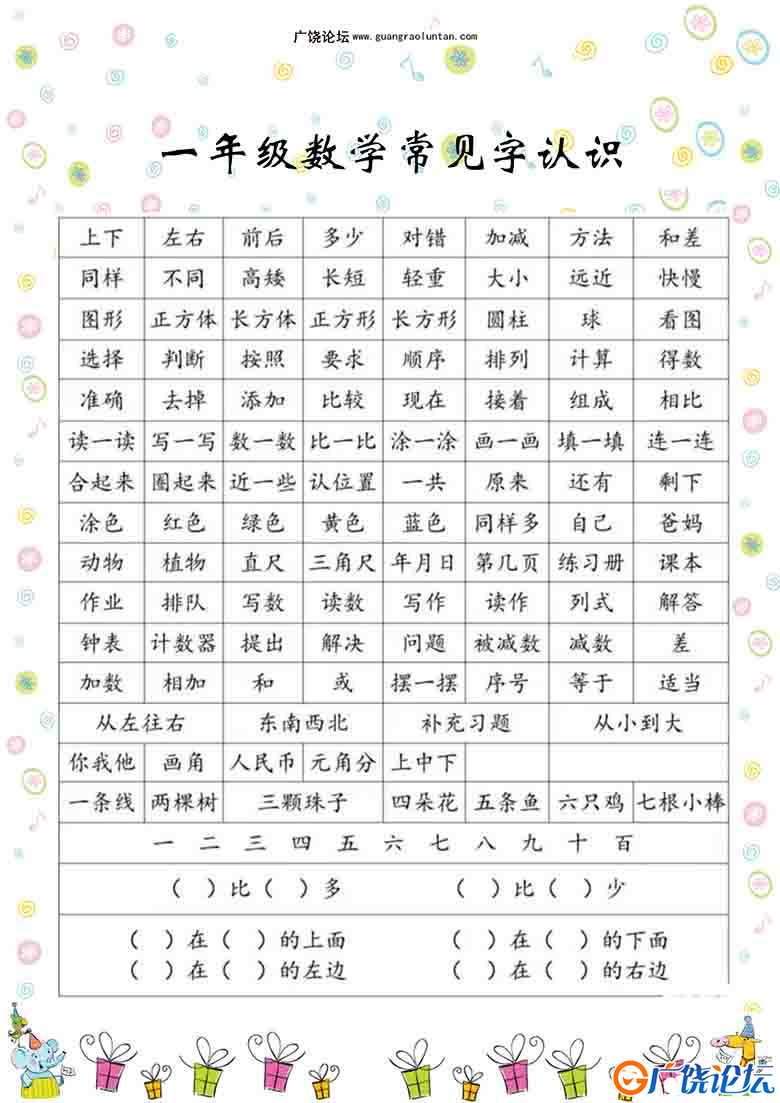 广饶论坛 www.guangraoluntan.com
一年级数学常见字认识
上下 左右 前后 多少 对错 加减 方法 和差
同样 不同 高矮 长短 轻重 大小 远近 快慢
图形 正方体 长方体 正方形 长方形 圆柱 球 看图
选择 判断 按照 要求 顺序 排列 计算 得数
准确 去掉 添加 比较 现在 接着 组成 相比
读一读 写一写 数一数 比一比 涂一涂 画一画 填一填 连一连
合起来 圈起来 近一些 认位置 一共 原来 还有 剩下
涂色 红色 绿色 黄色 蓝色 同样多 自己 爸妈
动物 植物 直尺 三角尺 年月日 第几页 练习册 课本
作业 排队 写数 读数 写作 读作 列式 解答
钟表 计数器 提出 解决 问题 被减数 减数 差
加数 相加 和 或 摆一摆 序号 等于 适当
从左往右 东南西北 补充习题 从小到大
你我他 画角 人民币 元角分 上中下
一条线 两棵树 三颗珠子 四朵花 五条鱼 六只鸡 七根小棒
一 二 三 四 五 六 七 八 九 十 百
（ ）比（ ）多 （ ）比（ ）少
（ ）在（ ）的上面 （ ）在（ ）的下面
（ ）在（ ）的左边 （ ）在（ ）的右边
广饶论坛